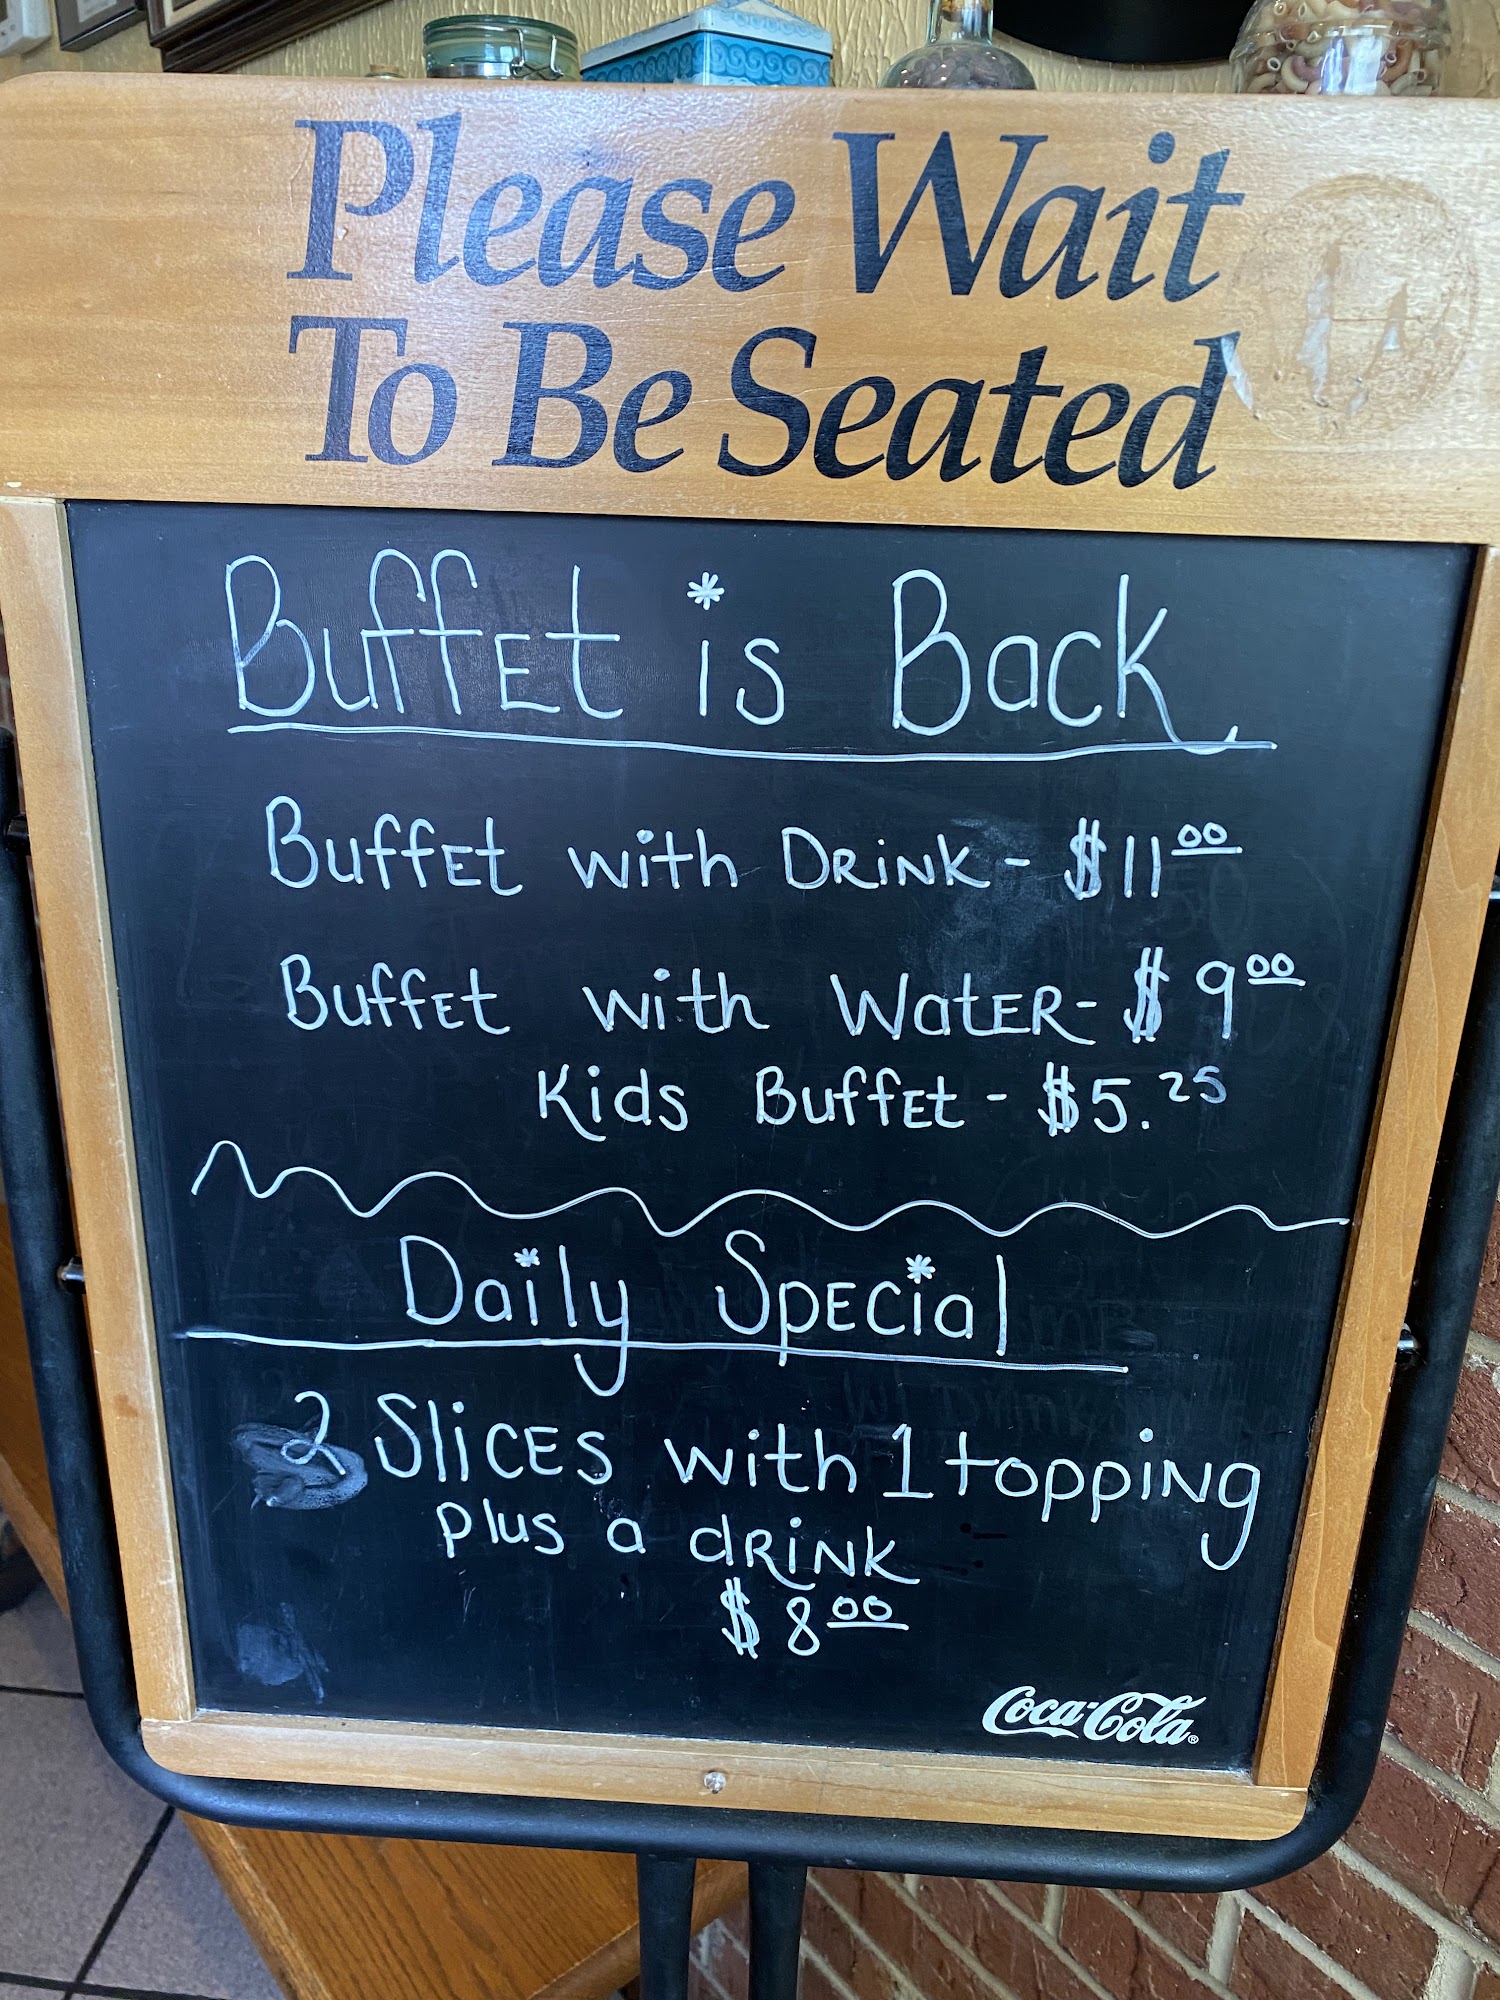 Please Wait
To Be Seated
Buffet is Back
Buffet with Drink - $11.00
Buffet with Water - $9.00
Kids Buffet - $5.25
Daily Special
2 Slices with 1 topping
plus a drink
$8.00
Coca-Cola®